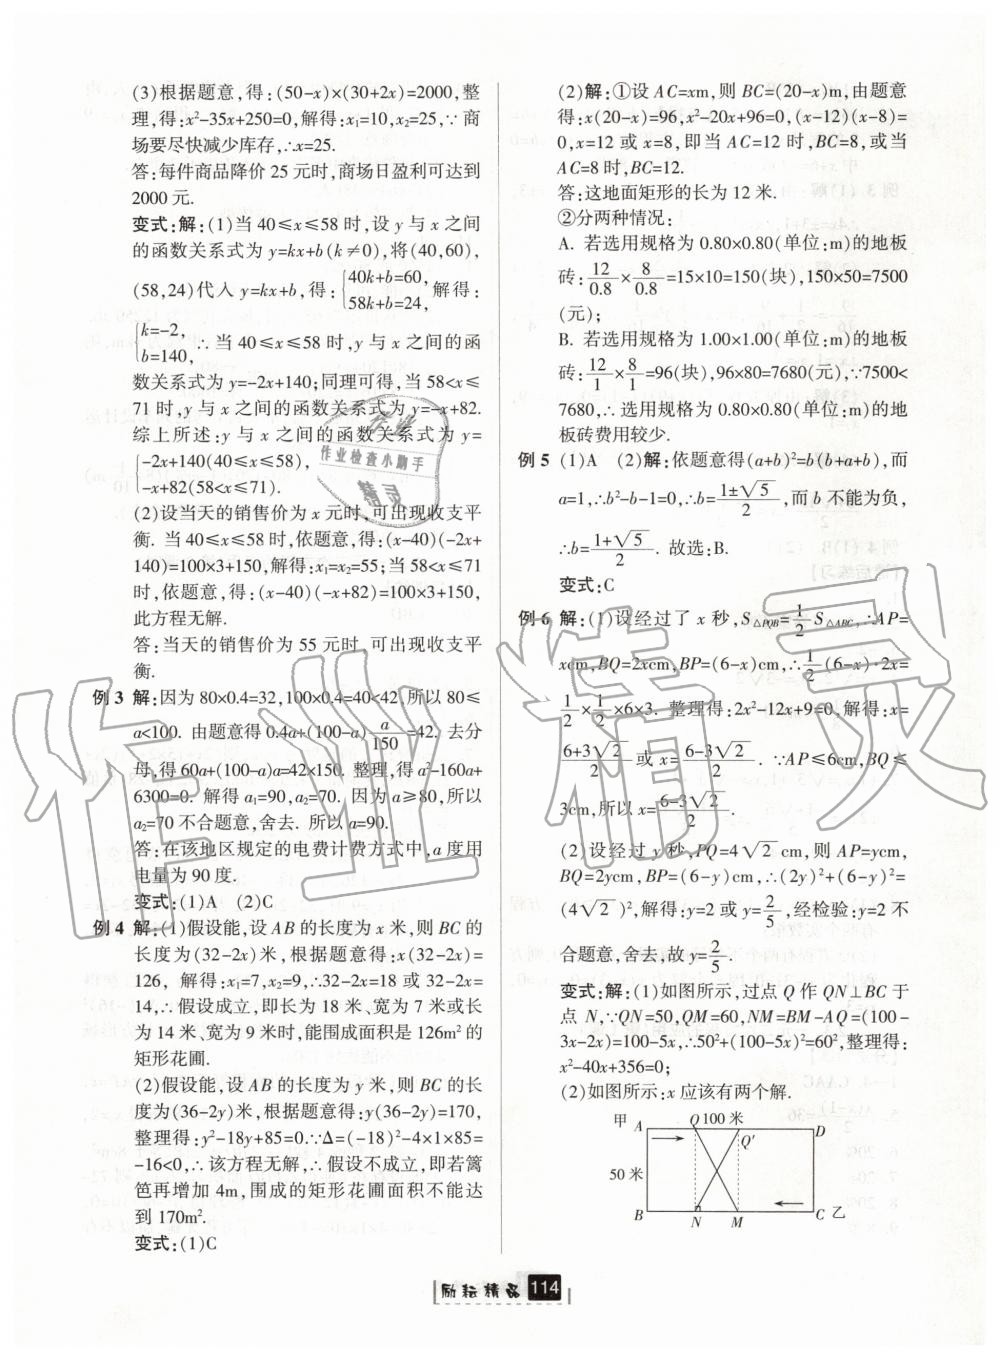 (3)根据题意,得:(50-x)×(30+2x)=2000,整
理,得:x²-35x+250=0,解得:x₁=10,x₂=25,∵商
场要尽快减少库存,∴x=25.
答:每件商品降价 25 元时,商场日盈利可达到
2000 元.
变式:解:(1)当 40≤x≤58 时,设 y 与 x 之间
的函数关系式为 y=kx+b(k≠0),将(40,60),
(58,24)代入 y=kx+b,得:{40k+b=60, 58k+b=24, 解得:
{k=-2, b=140, ∴当 40≤x≤58 时,y 与 x 之间的函
数关系式为 y=-2x+140;同理可得,当 58<x≤
71 时,y 与 x 之间的函数关系式为 y=-x+82.
综上所述:y 与 x 之间的函数关系式为 y=
{-2x+140(40≤x≤58),
-x+82(58<x≤71).
(2)设当天的销售价为 x 元时,可出现收支平
衡. 当 40≤x≤58 时,依题意,得:(x-40)(-2x+
140)=100×3+150,解得:x₁=x₂=55;当 58<x≤71
时,依题意,得:(x-40)(-x+82)=100×3+150,
此方程无解.
答:当天的销售价为 55 元时,可出现收支平
衡.
例 3 解:因为 80×0.4=32,100×0.4=40<42,所以 80≤
a<100. 由题意得 0.4a+(100-a)a/150=42. 去分
母,得 60a+(100-a)a=42×150. 整理,得 a²-160a+
6300=0. 解得 a₁=90,a₂=70. 因为 a≥80,所以
a₂=70 不合题意,舍去. 所以 a=90.
答:在该地区规定的电费计费方式中,a 度用
电量为 90 度.
变式:(1)A (2)C
例 4 解:(1)假设能,设 AB 的长度为 x 米,则 BC 的
长度为(32-2x)米,根据题意得:x(32-2x)=
126, 解得:x₁=7,x₂=9,∴32-2x=18 或 32-2x=
14,∴假设成立,即长为 18 米、宽为 7 米或长
为 14 米、宽为 9 米时,能围成面积是 126m²的
矩形花圃.
(2)假设能,设 AB 的长度为 y 米,则 BC 的长
度为(36-2y)米,根据题意得:y(36-2y)=170,
整理得:y²-18y+85=0.∵Δ=(-18)²-4×1×85=
-16<0,∴该方程无解,∴假设不成立,即若篱
笆再增加 4m,围成的矩形花圃面积不能达
到 170m².
变式:(1)C
(2)解:①设 AC=xm,则 BC=(20-x)m,由题意
得:x(20-x)=96,x²-20x+96=0,(x-12)(x-8)=
0,x=12 或 x=8,即当 AC=12 时,BC=8,或当
AC=8 时,BC=12.
答:这地面矩形的长为 12 米.
②分两种情况:
A. 若选用规格为 0.80×0.80(单位:m)的地板
砖:12/0.8×8/0.8=15×10=150(块),150×50=7500
(元);
B. 若选用规格为 1.00×1.00(单位:m)的地板
砖:12/1×8/1=96(块),96×80=7680(元),∵7500<
7680,∴选用规格为 0.80×0.80(单位:m)的地
板砖费用较少.
例 5 (1)A (2)解:依题意得(a+b)²=b(b+a+b),而
a=1,∴b²-b-1=0,∴b=(1±√5)/2,而 b 不能为负,
∴b=(1+√5)/2. 故选:B.
变式:C
例 6 解:(1)设经过了 x 秒,S△PQB=1/2 S△ABC,∴AP=
xcm,BQ=2xcm,BP=(6-x)cm,∴1/2(6-x)·2x=
1/2×1/2×6×3. 整理得:2x²-12x+9=0,解得:x=
(6+3√2)/2 或 x=(6-3√2)/2. ∵AP≤6cm,BQ≤
3cm,所以 x=(6-3√2)/2.
(2)设经过 y 秒,PQ=4√2cm,则 AP=ycm,
BQ=2ycm,BP=(6-y)cm,∴(2y)²+(6-y)²=
(4√2)²,解得:y=2 或 y=2/5,经检验:y=2 不
合题意,舍去,故 y=2/5.
变式:解:(1)如图所示,过点 Q 作 QN⊥BC 于
点 N,∵QN=50,QM=60,NM=BM-AQ=(100-
3x-2x)=100-5x,∴50²+(100-5x)²=60²,整理得:
x²-40x+356=0;
(2)如图所示:x 应该有两个解.
甲 A Q 100 米 D
Q′
50 米
B N M C 乙
励耘精品 114
作业精灵
作业
作业检查小助手
精灵